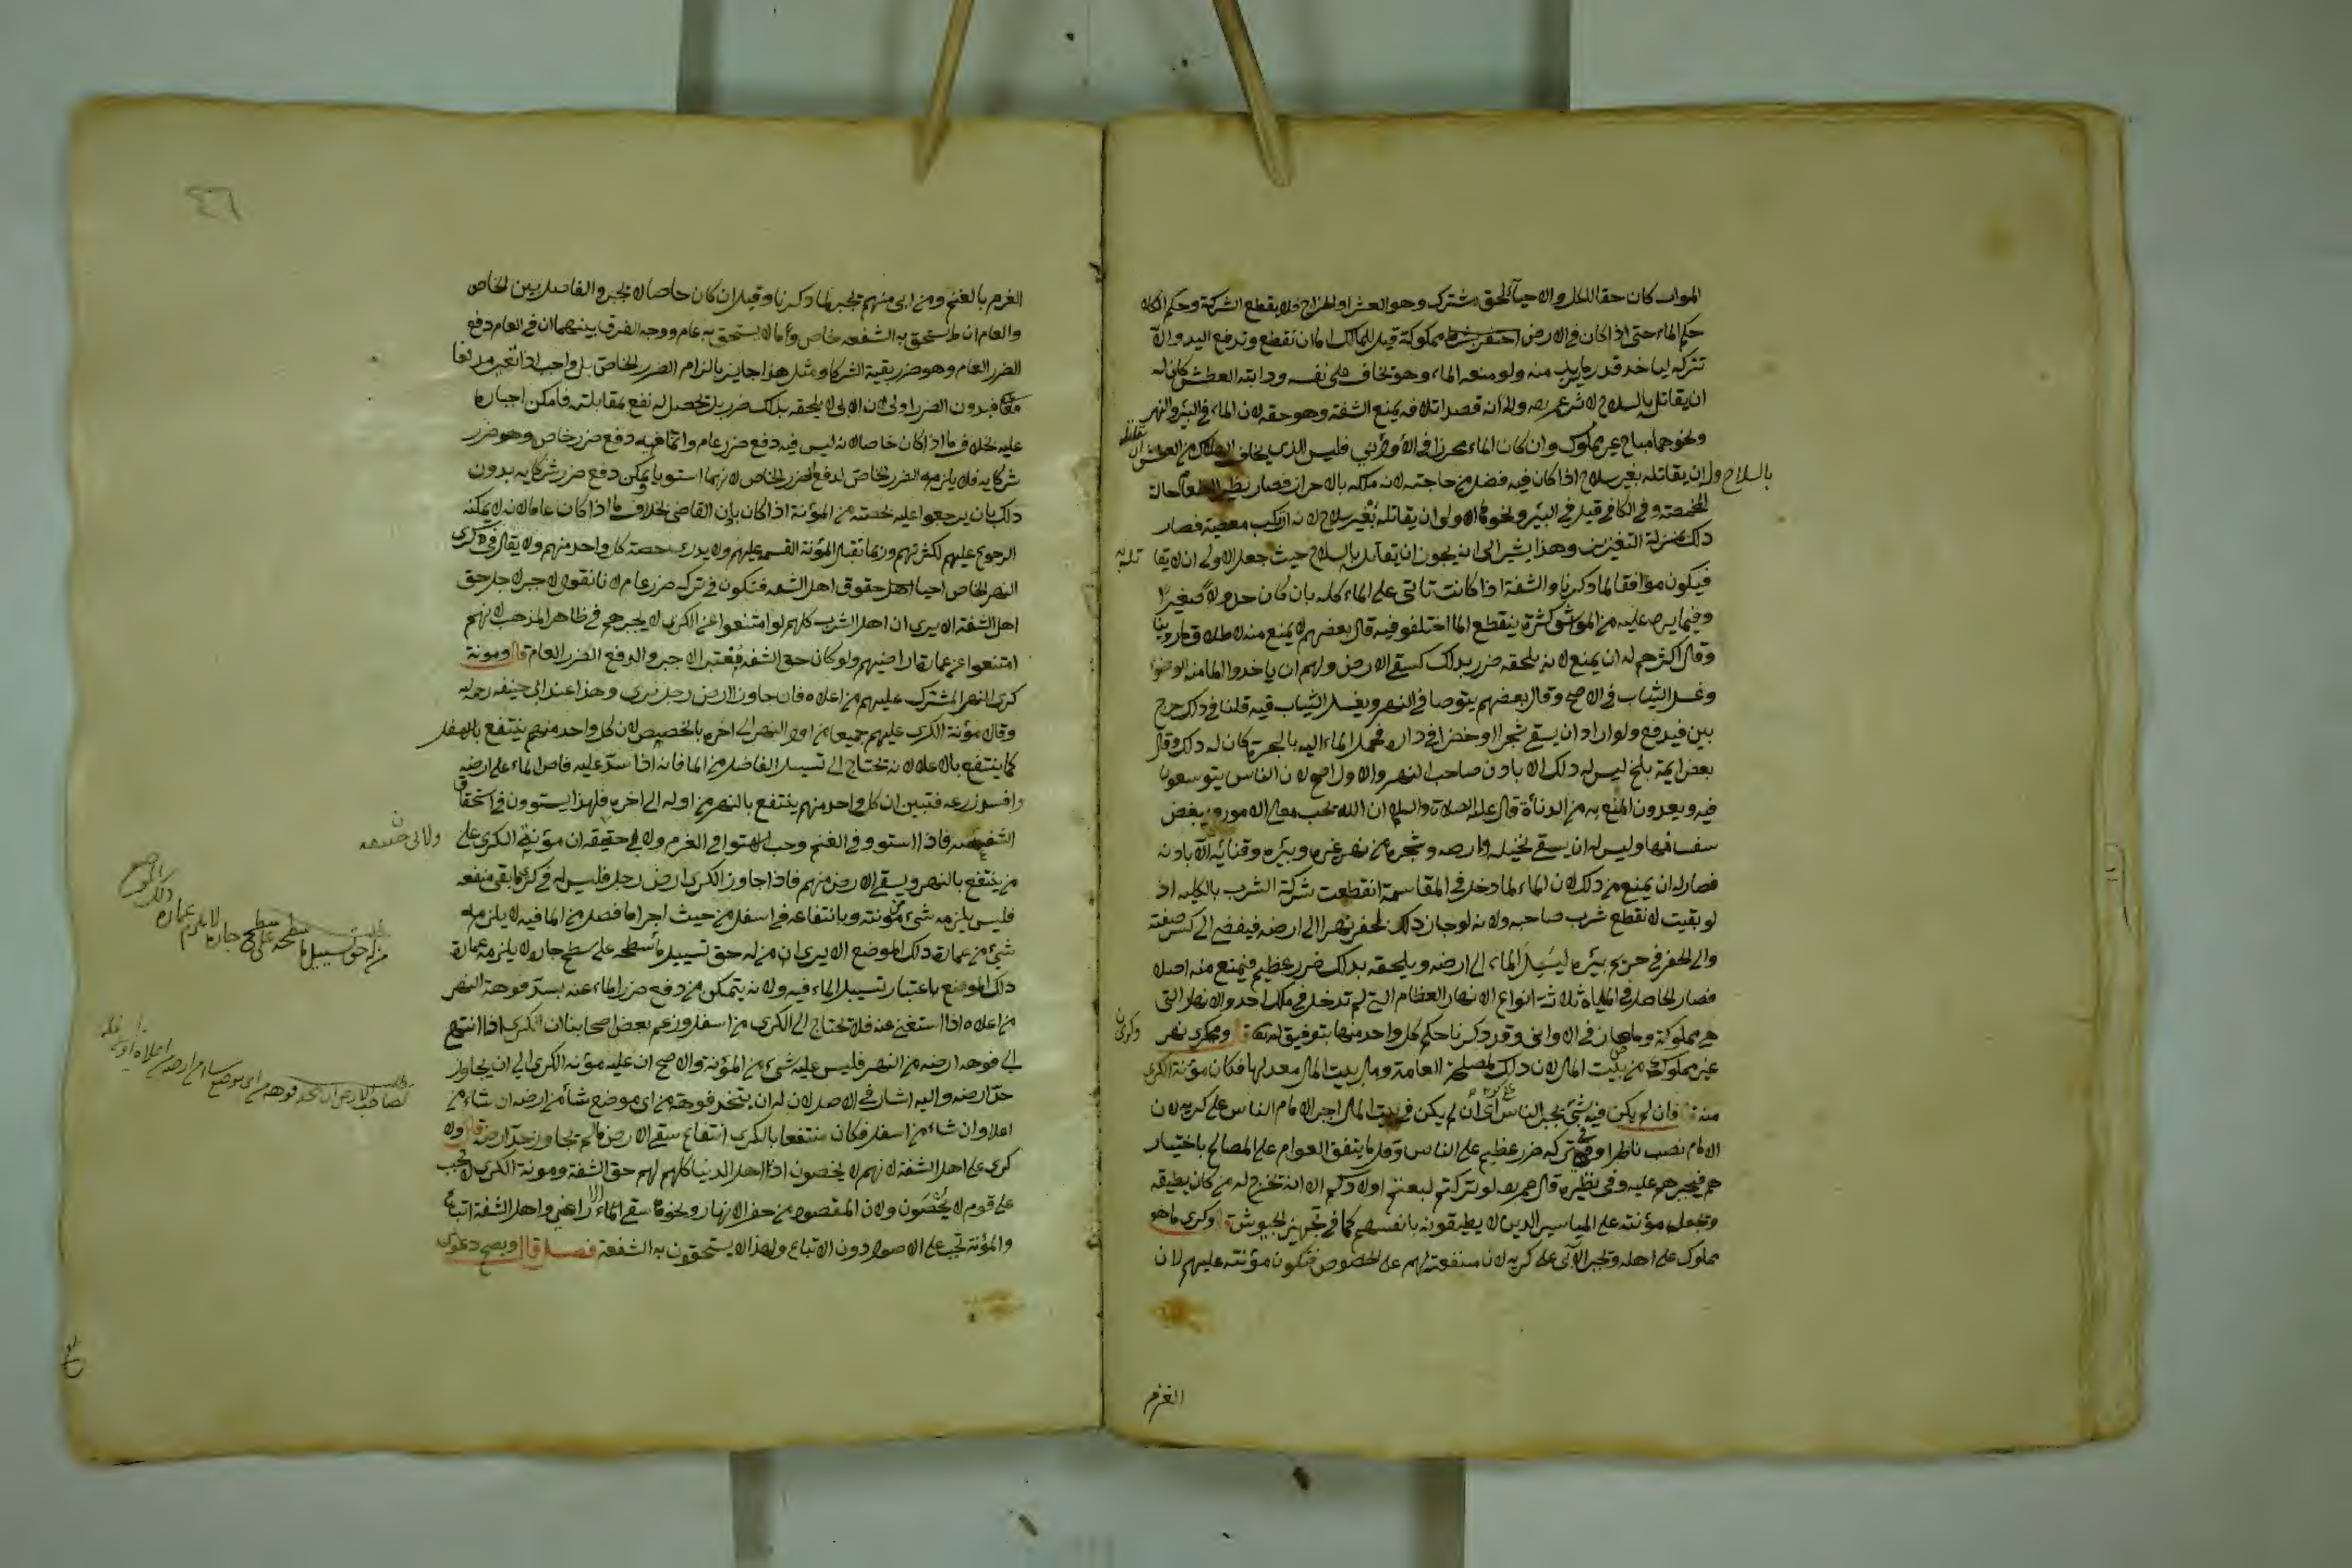 الموات كان حقا للكل والاحياء لحق مشترك وهو العشر او الخراج فلا يقطع الشركة وحكم الكلاء
حكم الماء حتى اذا كان في الارض مملوكة قيل للمالك اما ان تقطع وتدفع اليه والا
تتركه لياخذ قدر ما يريد منه ولو منعه الماء وهو يخاف على نفسه ودابته العطش كان له
ان يقاتل بالسلاح لاثر عمر رضه ولانه قصد اتلافه بمنع الشفة وهو حقه لان الماء في البئر والنهر
ونحوهما مباح غير مملوك وان كان الماء محرزا في الاواني فليس الذي يخاف الهلاك من العطش ان يقاتله
بالسلاح وله ان يقاتله بغير سلاح اذا كان فيه فضل من حاجته لانه ملكه بالاحراز فصار نظير الطعام حالة
المخمصة وفي الكافي قيل في البئر ونحوها الاولى ان يقاتله بغير سلاح لانه ارتكب معصية فصار
ذلك بمنزلة التعزير وهذا يشير الى انه يجوز ان يقاتل بالسلاح حيث جعل الاولى ان لا يقاتله به
فيكون موافقا لما ذكرنا والشفة اذا كانت تاتي على الماء كله بان كان جدولا صغيرا
وفيما يرد عليه من المواشي كثرة ينقطع الما اختلفوا فيه قال بعضهم لا يمنع منه لاطلاق ما روينا
وقال اكثرهم له ان يمنع لانه يلحقه ضرر بذلك كسقي الارض ولهم ان ياخذوا الما منه للوضوء
وغسل الثياب في الاصح وقال بعضهم يتوضا في النهر ويغسل الثياب فيه قلنا في ذلك حرج
بين فيدفع ولو اراد ان يسقي شجرا او خضرا في داره فحمل الماء اليه بالجرة كان له ذلك وقال
بعض ايمة بلخ ليس له ذلك الا باذن صاحب النهر والاول اصح لان الناس يتوسعون
فيه ويعدون المنع به من الدناءة قال عليه الصلاة والسلام ان الله يحب معالي الامور ويبغض
سفسافها وليس له ان يسقي نخيله وارضه وشجره من نهر غيره وبيره وقناته الا باذنه
فصار له ان يمنع من ذلك لان الماء لما دخل في المقاسمة انقطعت شركة الشرب بالكليه اذ
لو بقيت لانقطع شرب صاحبه ولانه لو جاز ذلك لحفر نهرا الى ارضه فيفضي الى كسر ضفته
والى الحفر في حريم بيره ليسيل الماء الى ارضه ويلحقه بذلك ضرر عظيم فيمنع منه اصلا
فصار الحاصل في المياه ثلاثة انواع الانهار العظام التي لم تدخل في ملك احد والانهار التي
هي مملوكة وما صار في الاواني وقد ذكرنا حكم كل واحد منها بتوفيق الله تعالى قال وكري نهر
غير مملوك من بيت المال لان ذلك لمصلحة العامة ومال بيت المال معد لها فكان مؤنة الكري
منه قال فان لم يكن فيه شيء يجبر الناس اي ان لم يكن في بيت المال اجبر الامام الناس على كريه لان
الامام نصب ناظرا وفي تركه ضرر عظيم على الناس وقل ما يتفق العوام على المصالح باختيار
هم فيجبرهم عليه وفي نظيره قال عمر رضه لو تركتم لبعتم اولادكم الا انه تخرج له من كان يطيقه
وتجعل مؤنته على المياسير الذين لا يطيقونه بانفسهم كما في تجهيز الجيوش قال وكري ما هو
مملوك على اهله ويجبر الآبي على كريه لان منفعته لهم على الخصوص فتكون مؤنته عليهم لان
الغرم
٤٦
الغرم بالغنم ومن ابى منهم يجبر لما ذكرنا وقيل ان كان خاصا لا يجبر والفاصل بين الخاص
والعام ان ما تستحق به الشفعه خاص وما لا يستحق به عام ووجه الفرق بينهما ان في العام دفع
الضرر العام وهو ضرر بقية الشركا ومثل هذا جايز بالزام الضرر الخاص بل واجب اذا تعين مدفعا
فبدون الضرر اولى لان الابي لا يلحقه بذلك ضرر بل تحصل له نفع بمقابلته فامكن اجباره
عليه بخلاف ما اذا كان خاصا لانه ليس فيه دفع ضرر عام وانما فيه دفع ضرر خاص وهو ضرر
شركايه فلا يلزمه الضرر الخاص لدفع الضرر الخاص لانهما استويا ويمكن دفع ضرر شركايه بدون
ذلك بان يرجعوا عليه بحصته من المؤنة اذا كان باذن القاضي بخلاف ما اذا كان عاما لانه لا يمكنه
الرجوع عليهم لكثرتهم وربما تقبل المؤنة القسمة عليهم ولا يدرى حصة كل واحد منهم ولا يقال في كرى
النهر الخاص احيا اهل حقوق اهل الشفه فتكون في تركه ضرر عام لانا نقول لا جبر لاجل حق
اهل الشفة الا يرى ان اهل الشرب كلهم لو امتنعوا عن الكري لا يجبرهم في ظاهر المذهب لانهم
امتنعوا عن عمارة اراضيهم ولو كان حق الشفه معتبرا لاجبروا لدفع الضرر العام قال ومونة
كري النهر المشترك عليهم من اعلاه فان جاوز ارض رجل بري وهذا عند ابي حنيفه رحمه الله
وقالا مؤنة الكرى عليهم جميعا من اول النهر الى اخره بالحصص لان لكل واحد منهم ينتفع بالاسفل
كما ينتفع بالاعلا لانه يحتاج الى تسييل الفاضل من الما فانه اذا سد عليه فاض الماء على ارضه
وافسد زرعه فتبين ان كل واحد منهم ينتفع بالنهر من اوله الى اخره فلهذا يستوون في استحقاق
الشفعه فاذا استووا في الغنم وجب ان يستووا في الغرم ولابي حنيفه ان مؤنة الكري على
من ينتفع بالنهر ويسقي الارض منهم فاذا جاوز الكري ارض رجل فليس له في كري ما بقي منفعه
فليس يلزمه شيء من مؤنته وبانتفاعه في اسفل من حيث اجرا ما فضل من الما فيه لا يلزمه
شيئ من عمارة ذلك الموضع الا يرى ان من له حق تسييل ماء سطحه على سطح جاره لا يلزمه عمارة
ذلك الموضع باعتبار تسييل الماء فيه ولانه يتمكن من دفع ضرر الماء عنه بسد فوهة النهر
من اعلاه اذا استغنى عنه فلا تحتاج الى الكري من اسفل وزعم بعض اصحابنا ان الكري اذا انتهى
الى فوهه ارضه من النهر فليس عليه شيء من المؤنة والاصح ان عليه مؤنه الكري الى ان يجاوز
حد ارضه واليه اشار في الاصل لان له ان يتخذ فوهة من اي موضع شا من ارضه ان شاء من
اعلا وان شاء من اسفل فكان منتفعا بالكري انتفاع سقي الارض ما لم يجاوز حد ارضه قال ولا
كري على اهل الشفة لانهم لا يحصون اذ اهل الدنيا كلهم لهم حق الشفة ومونة الكري لا تجب
على قوم لا يحصون ولان المقصود من حفر الانهار ونحوها سقي الاراضي واهل الشفة اتباع
والمؤنة تجب على الاصول دون الاتباع ولهذا لا يستحقون به الشفعة فصل قال ويصح دعوى
ولابي حنيفه
من له حق تسييل ماء سطحه على سطح جاره لا يلزم عمارة ذلك الموضع